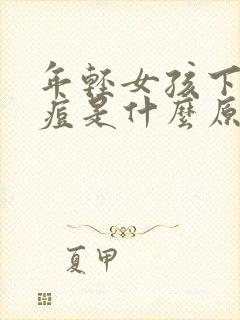 年轻女孩下
痘是什麼原
夏甲